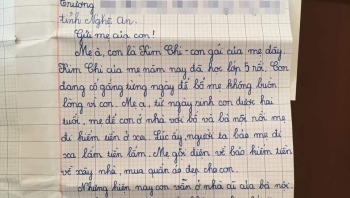 Trường
tỉnh Nghệ An.
Gửi mẹ của con!
Mẹ à, con là Kim Chi - con gái của mẹ đây.
Kim Chi của mẹ năm nay đã học lớp 5 rồi. Con
đang cố gắng từng ngày để bố mẹ không buồn
lòng vì con. Mẹ ạ, từ ngày sinh con được hai
tuổi, mẹ để con ở nhà với bố và bà nội rồi mẹ
đi kiếm tiền ở xa. Lúc ấy người ta bảo mẹ đi
xa lắm tiền lắm. Mẹ gọi điện về bảo kiếm tiền
về xây nhà, mua quần áo đẹp cho con.
Nhưng hiện nay con vẫn ở nhà cũ của bà nội.